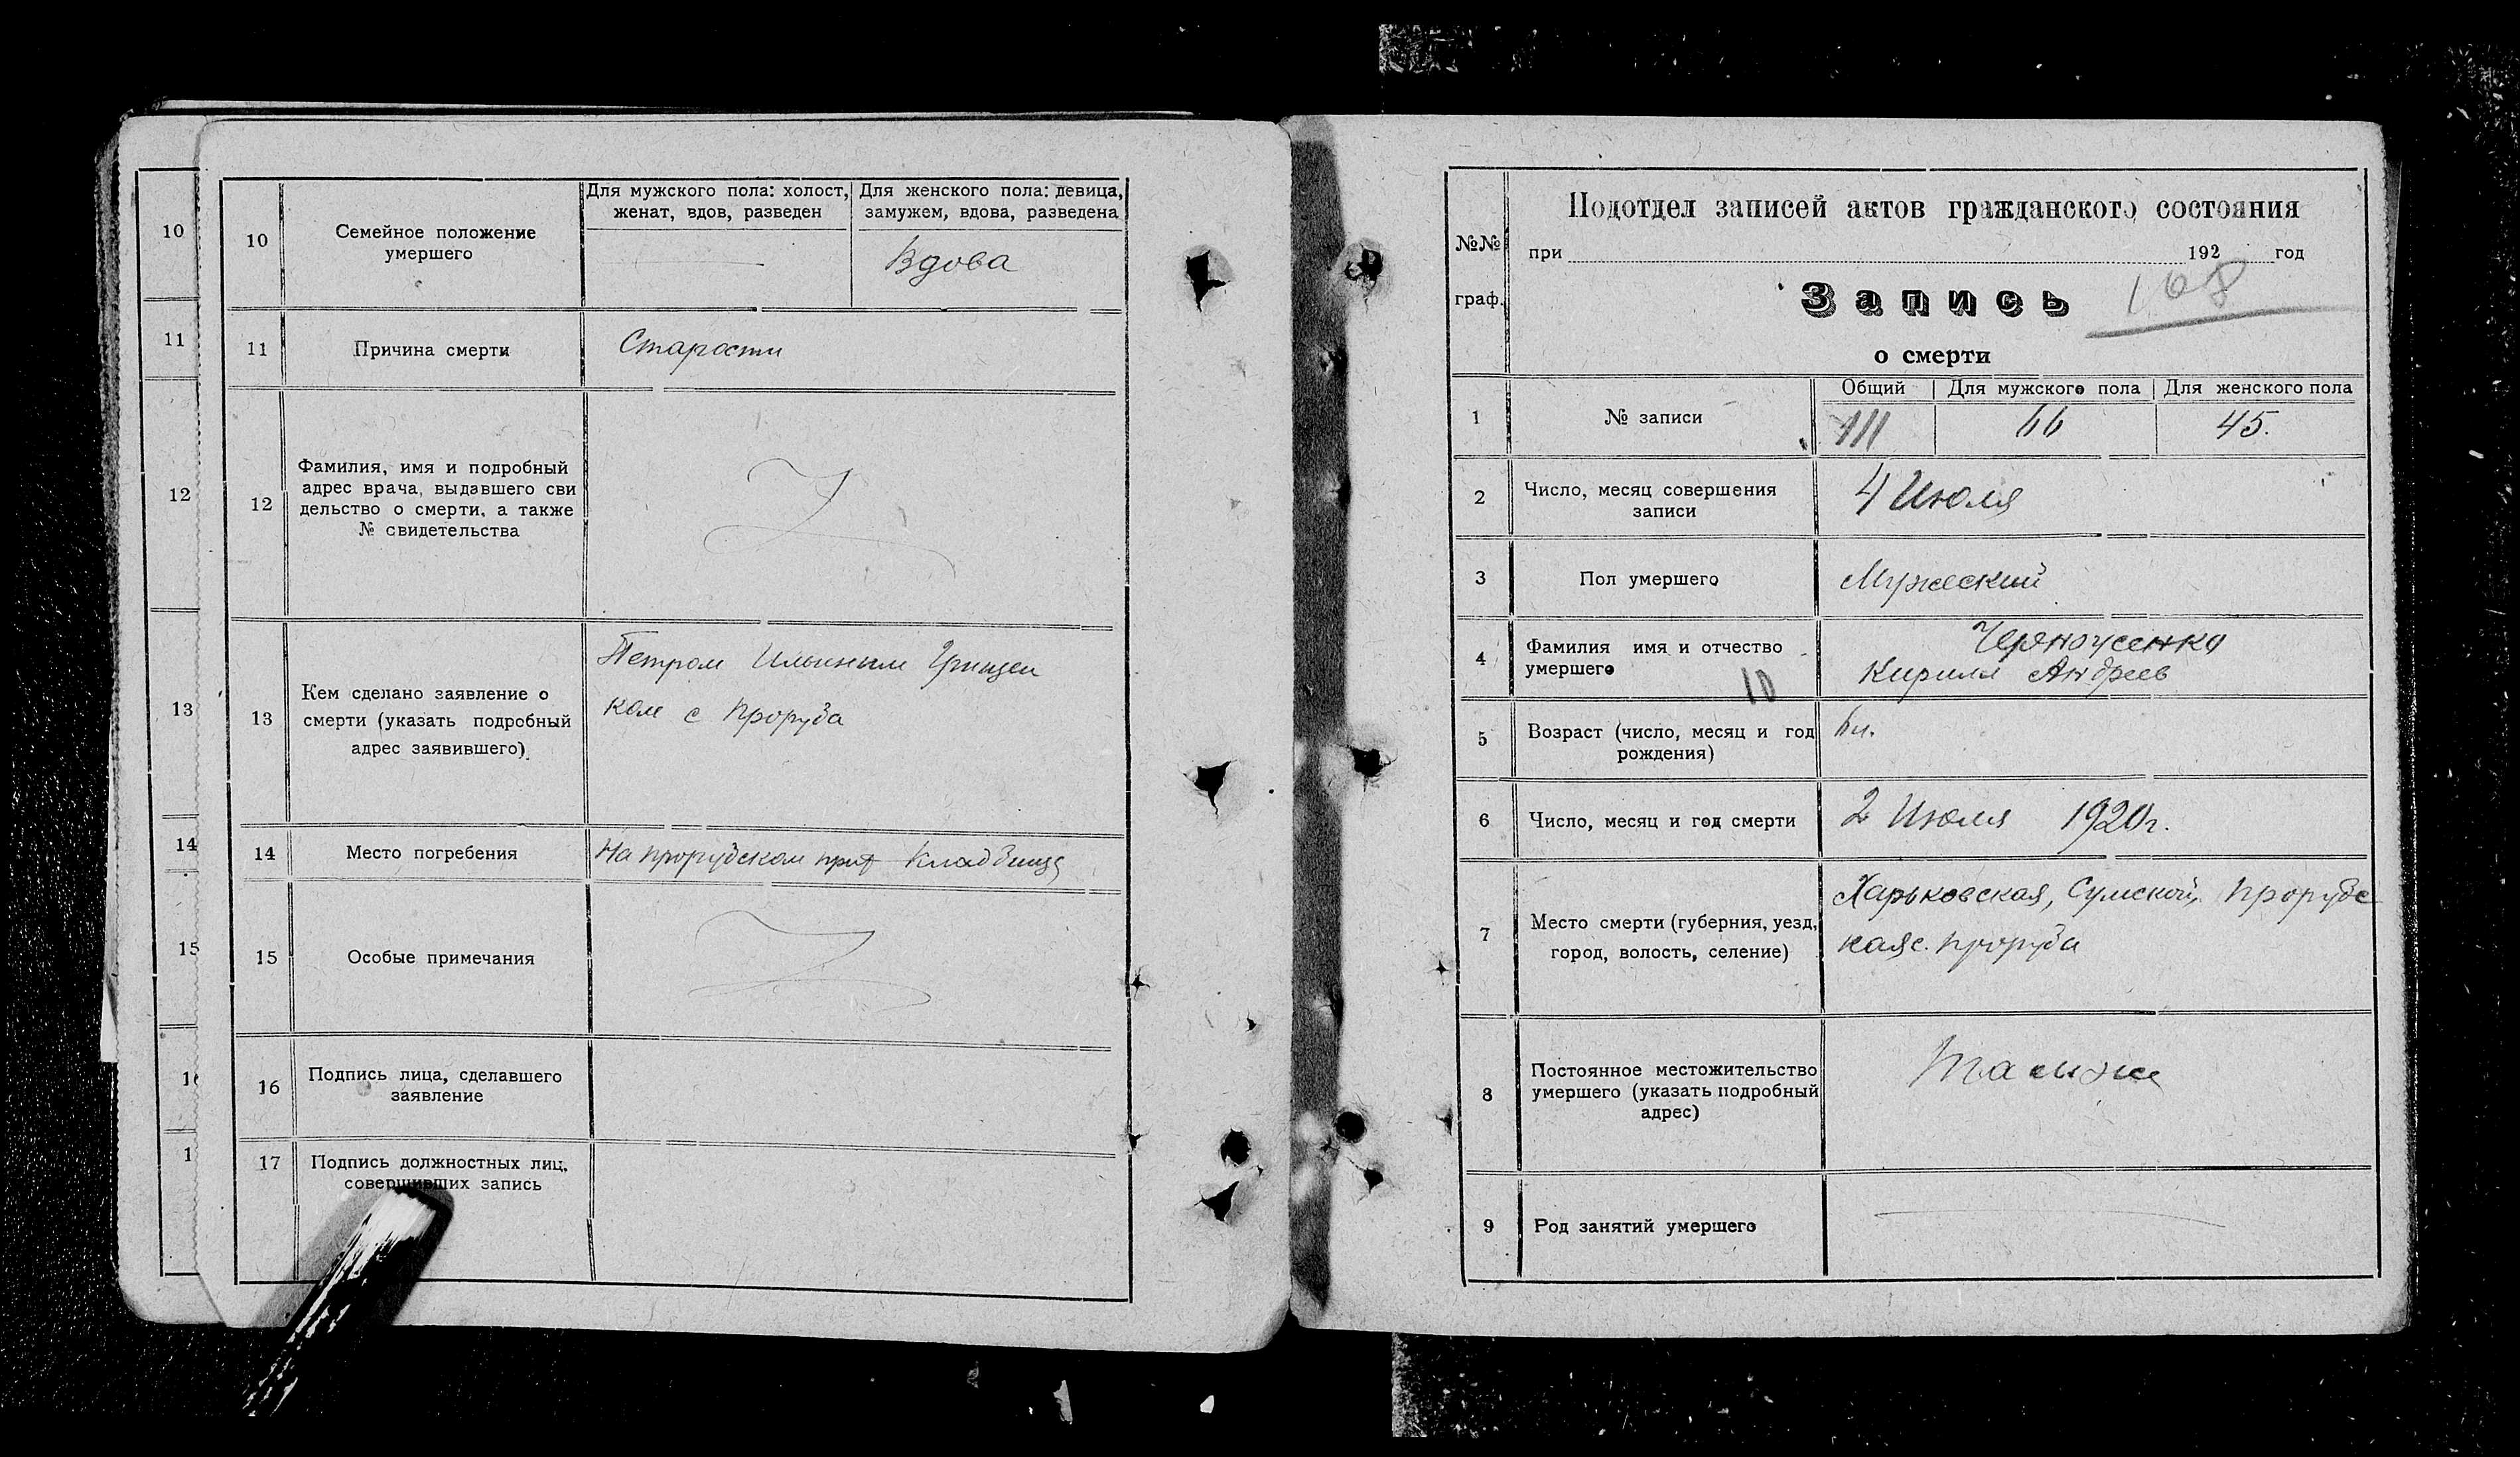 10
11
12
13
14
15
10
Семейное положение
умершего
Для мужского пола: холост,
женат, вдов, разведен
Для женского пола: девица,
замужем, вдова, разведена
Вдова
11
Причина смерти
Старости
12
Фамилия, имя и подробный
адрес врача, выдавшего сви
дельство о смерти, а также
№ свидетельства
13
Кем сделано заявление о
смерти (указать подробный
адрес заявившего)
Петром Ильиным Грищен
ком с Проруба
14
Место погребения
На прорубском кладбище
15
Особые примечания
16
Подпись лица, сделавшего
заявление
17
Подпись должностных лиц,
совершивших запись
№№
граф.
Подотдел записей актов гражданского состояния
при 192 год
Запись
168
о смерти
1
№ записи
Общий
Для мужского пола
Для женского пола
111
66
45.
2
Число, месяц совершения
записи
4 Июля
3
Пол умершего
Мужеский
4
Фамилия имя и отчество
умершего
10
Черноусенко
Кирилл Андреев
5
Возраст (число, месяц и год
рождения)
6
Число, месяц и год смерти
2 Июля 1920г.
7
Место смерти (губерния, уезд,
город, волость, селение)
Харьковская, Сумской, Прорубс
кая с. Проруба
8
Постоянное местожительство
умершего (указать подробный
адрес)
Там же
9
Род занятий умершего